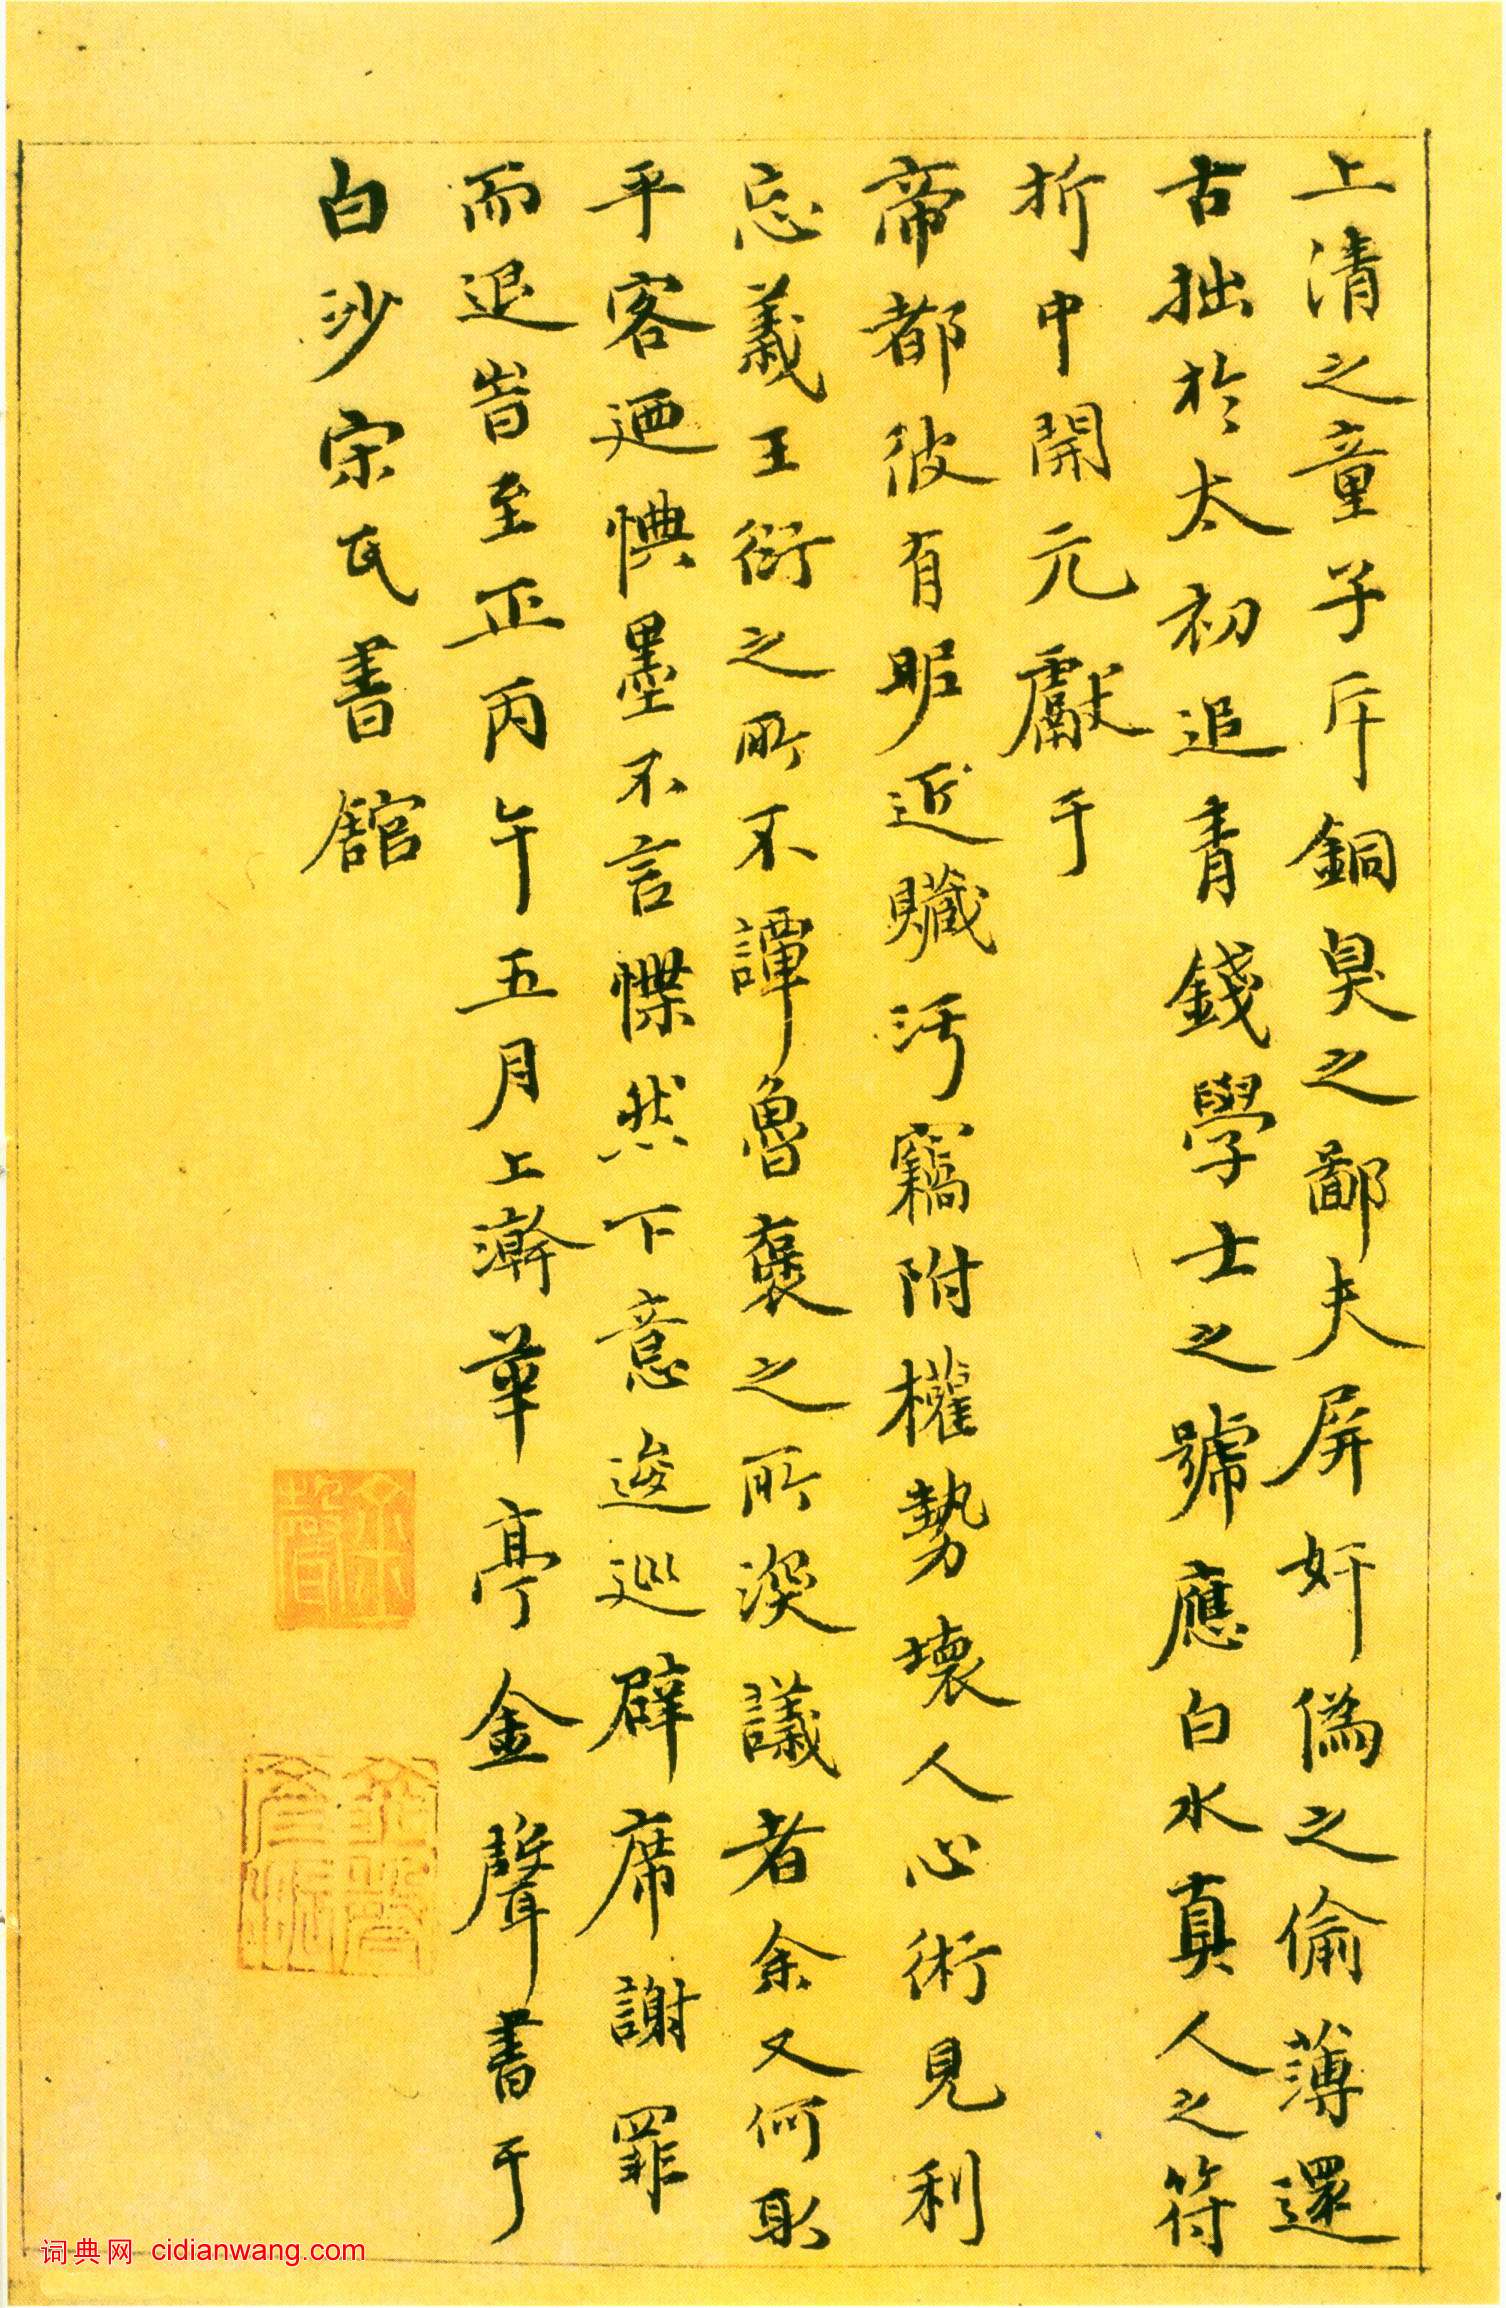 上清之童子斥銅臭之鄙夫屏奸偽之偷薄還
古拙於太初追青錢學士之號應白水真人之符
折中開元獻于
帝都彼有昵近贓污竊附權勢壞人心術見利
忘義王衍之所不譚魯褒之所深議者余又何取
乎客迺惧墨不言惵然下意逡巡辟席謝罪
而退旹至正丙午五月上澣華亭金聲書于
白沙宗氏書舘
金聲
词典网 cidianwang.com